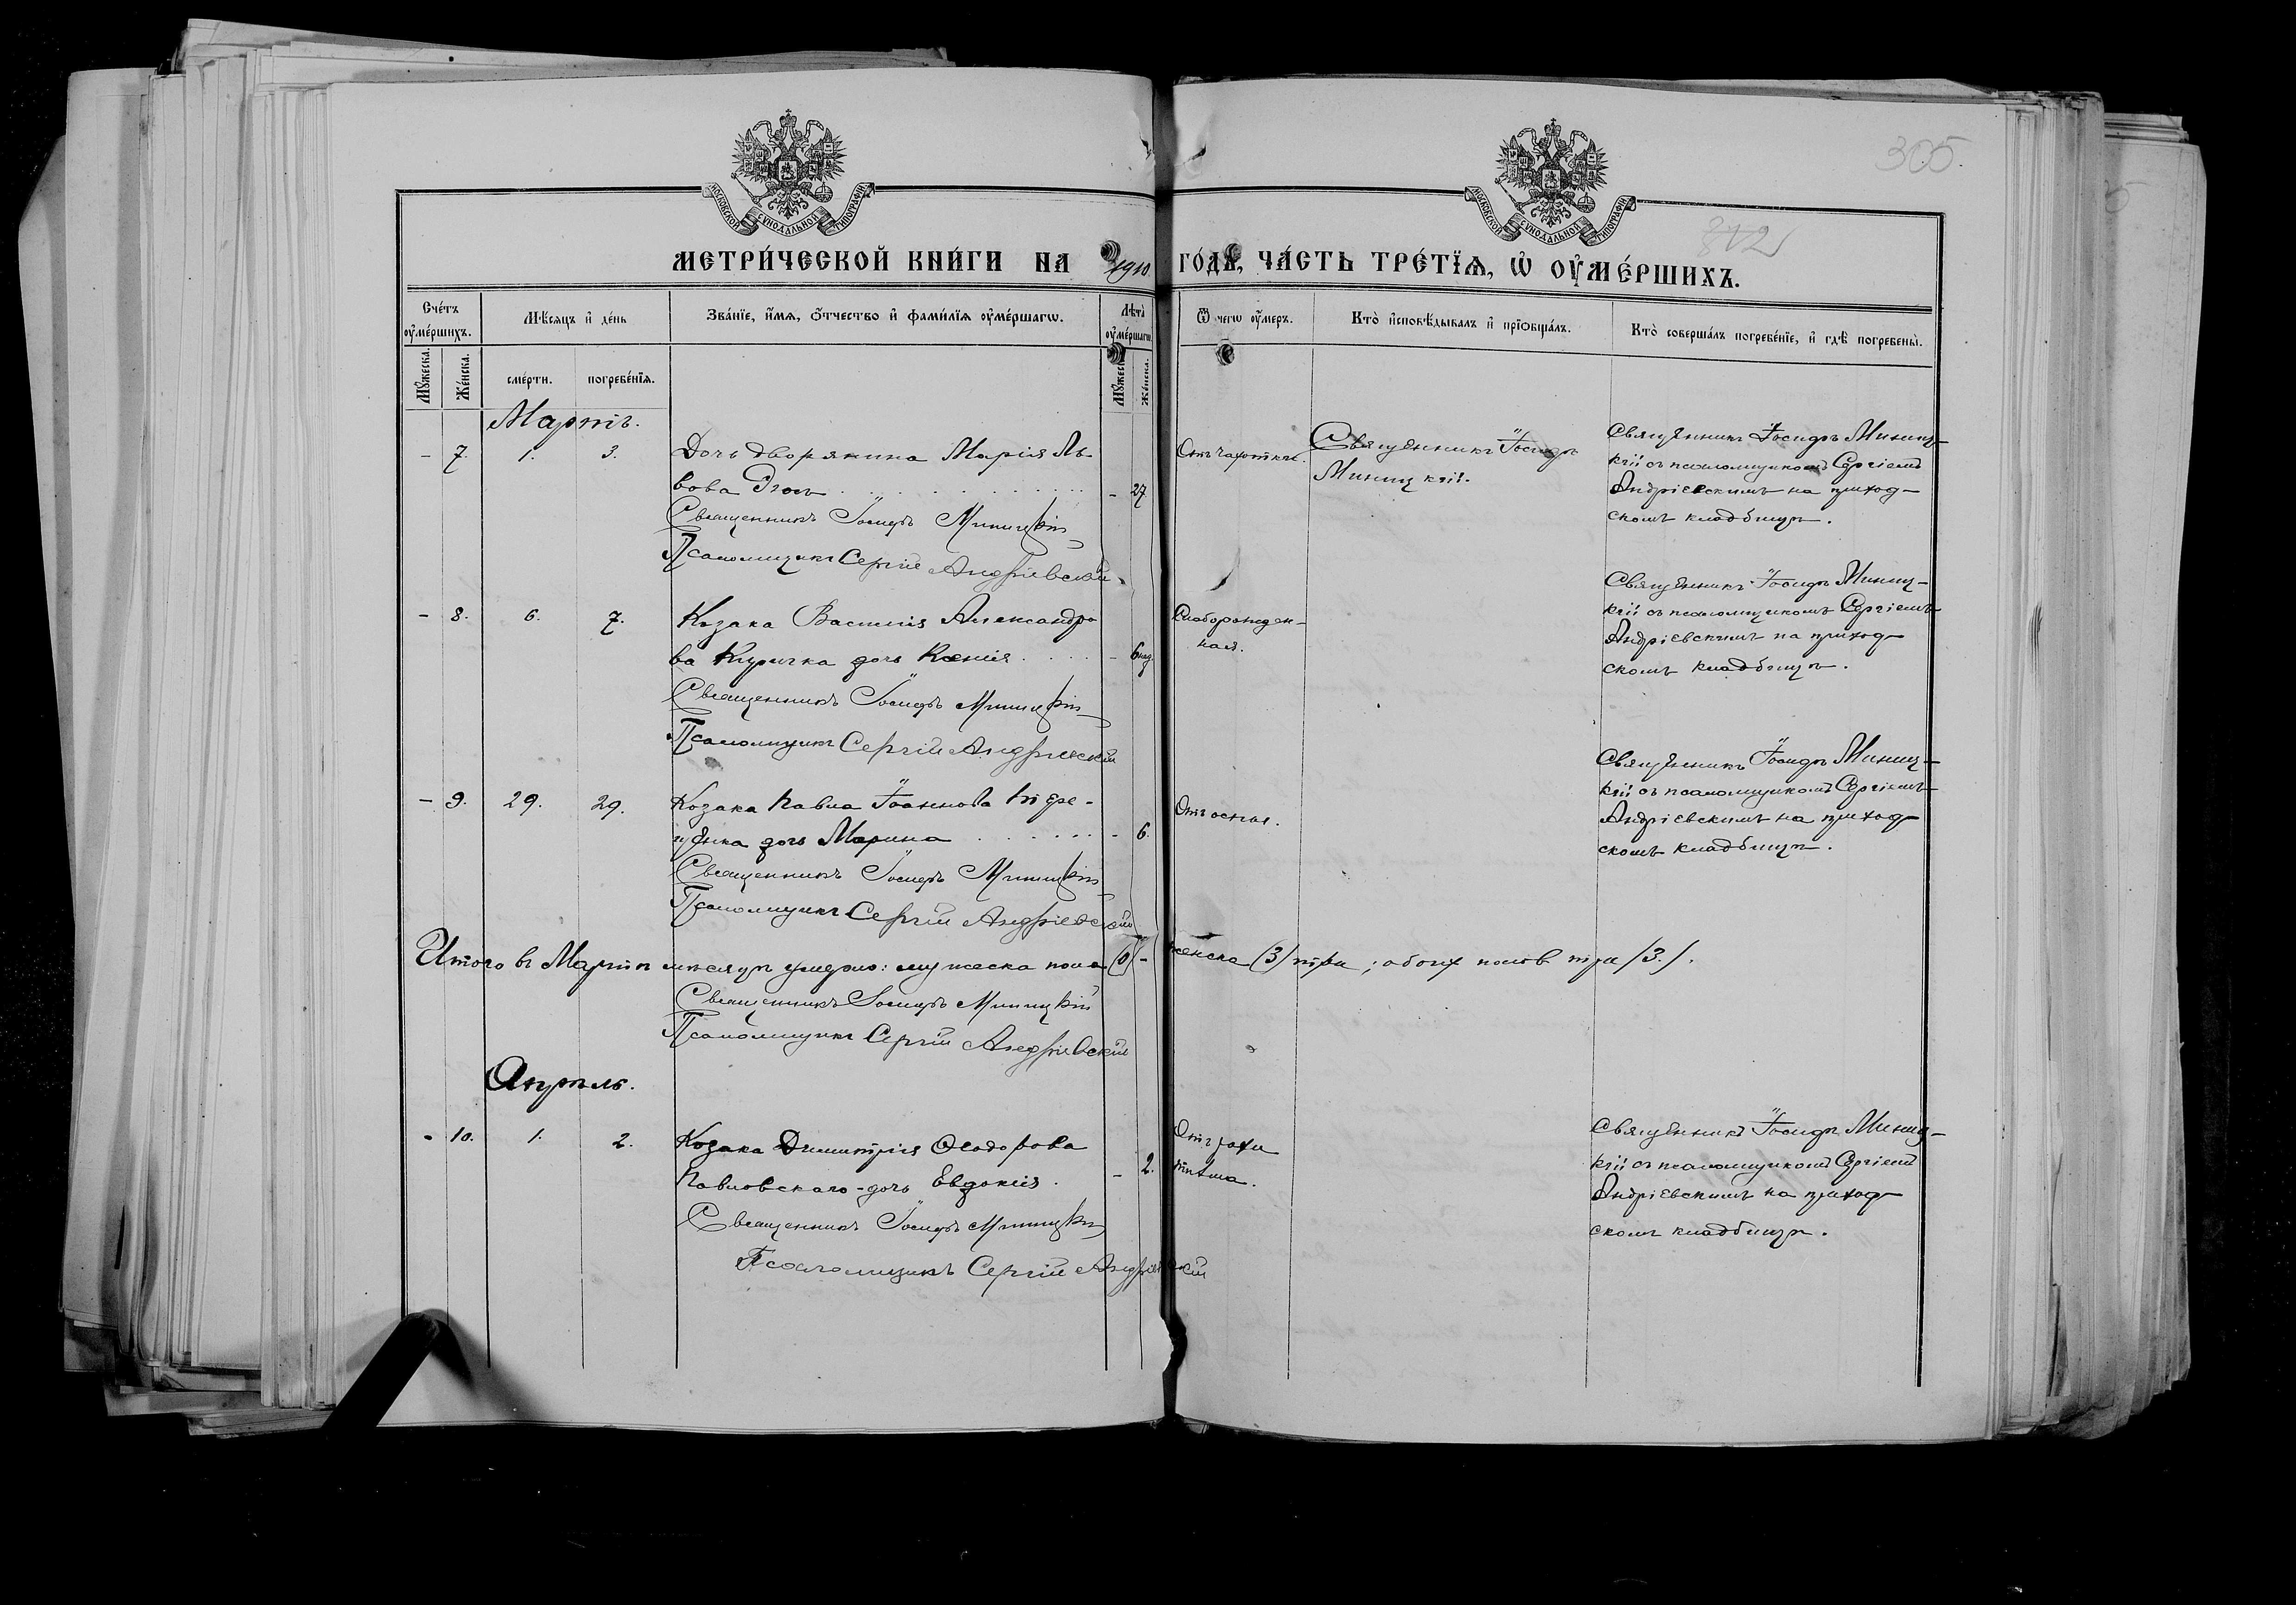 305.
312
МОСКОВСКОЙ СѴНОДАЛЬНОЙ ТИПОГРАФІИ
МОСКОВСКОЙ СѴНОДАЛЬНОЙ ТИПОГРАФІИ
МЕТРИ́ЧЕСКОЙ КНИ́ГИ НА 1910 ГО́ДЪ, ЧА́СТЬ ТРЕ́ТЇѦ, Ѡ҆ ОУ҆МЕ́РШИХЪ.
Сче́тъ оу҆ме́ршихъ.
Мѣ́сяцъ и҆ де́нь
Зва́нїе, и҆́мѧ, ѻ҆́тчество и҆ фами́лїѧ оу҆ме́ршагѡ.
Лѣта̀ оу҆ме́ршагѡ.
Ѿ чегѡ оу҆́меръ.
Кто̀ и҆сповѣ́дывалъ и҆ прїобща́лъ.
Кто̀ соверша́лъ погребе́нїе, и҆ гдѣ̀ погребены̀.
Мꙋ́жеска. Же́нска. сме́рти. погребе́нїѧ. Мꙋ́жеска. Же́нска.
Мартъ.
- 7. 1. 3. Дочь дворянина Марія Ль-
вова - 27.
Священникъ Іосифъ Миницкій
Псаломщикъ Сергій Андріевскій
Отъ чахотки.
Священникъ Іосифъ
Миницкій.
Священникъ Іосифъ Миниц-
кій съ псаломщикомъ Сергіемъ
Андріевскимъ на приход-
скомъ кладбищѣ.
- 8. 6. 7. Козака Василія Александро
ва Киричка дочь Ксенія . . . . - 6 нед.
Священникъ Іосифъ Миницкій
Псаломщикъ Сергій Андріевскій
Слаборожден-
ная.
Священникъ Іосифъ Миниц-
кій съ псаломщикомъ Сергіемъ
Андріевскимъ на приход-
скомъ кладбищѣ.
- 9. 29. 29. Козака Павла Іоаннова
дочь Марина . . . . . . - 6.
Священникъ Іосифъ Миницкій
Псаломщикъ Сергій Андріевскій
Отъ оспы.
Священникъ Іосифъ Миниц-
кій съ псаломщикомъ Сергіемъ
Андріевскимъ на приход-
скомъ кладбищѣ.
Итого въ Мартѣ мѣсяцѣ умерло: мужеска пола (0) - женска (3) три; обоихъ половъ три (3).
Священникъ Іосифъ Миницкій
Псаломщикъ Сергій Андріевскій
Апрѣль.
- 10. 1. 2. Козака Димитрія Ѳеодорова
Павловскаго - дочь Евдокія . - 2.
Священникъ Іосифъ Миницкій
Псаломщикъ Сергій Андріевскій
Отъ рахи
тизма.
Священникъ Іосифъ Миниц-
кій съ псаломщикомъ Сергіемъ
Андріевскимъ на приход-
скомъ кладбищѣ.